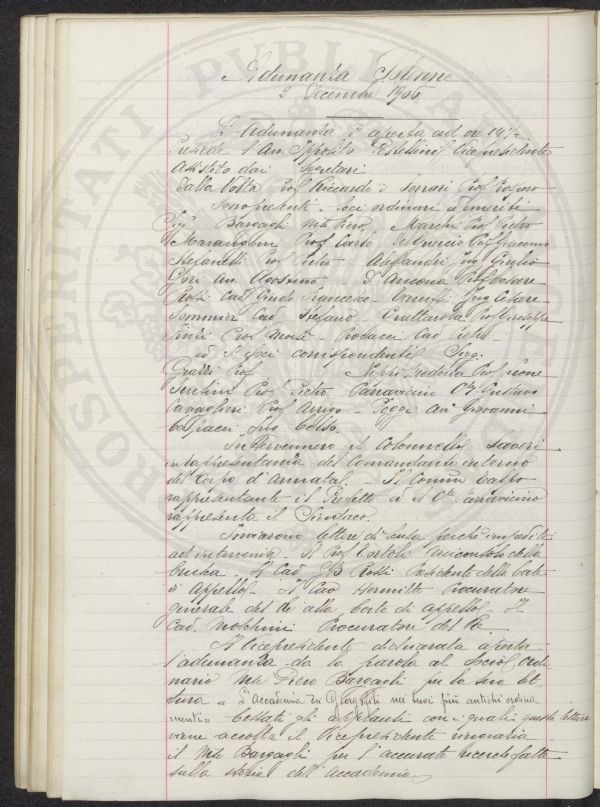 Adunanza Solenne
2 Decembre 1906
L'Adunanza è aperta ad ore 14 ½
Presiede l'Avv. Ippolito Pestellini Vicepresidente
Assistito dai Secretari
Dalla Volta Prof Riccardo e Ferrari Prof Prospero
Sono presenti - Soci ordinari e emeriti
Sigg. Bargagli Mse Piero, Marchi Prof Pietro
Marangoni Prof Carlo Del Guercio Prof Giacomo
Stefanelli Prof Pietro Alessandri Ing Giulio
Gori Avv. Agostino D'Ancona Prof Cesare
Rosi Cav Guido Francesco Ing Cesare
Sommier Cav Stefano - Grattarola Prof Giuseppe
Finzi Prof Moisè - Prof Pietro
e i Soci corrispondenti Sigg.
Grazzi Prof Prof Leone
Prof Pietro Parravicino Cte Gustavo
Cavaglieri Prof Arrigo - Poggi Avv Giovanni
Ing Celso.
Intervennero il Colonnello
in rappresentanza del Comandante interno
del Corpo d'Armata - Il
rappresentante il Prefetto e il Cte Parravicino
rappresenta il Sindaco.
Inviarono lettere di scusa perchè impediti
ad intervenire - Il Prof della
Crusca. Il Cav GB Rossi Presidente della Corte
d'Appello - Il Cav Procuratore
generale del Re alla Corte di Appello - Il
Cav. Moschini Procuratore del Re
Il Vicepresidente dichiarata aperta
l'adunanza da la parola al Socio Ordi
nario Mse Piero Bargagli per la sua let
tura "L'Accademia dei Georgofili nei suoi più antichi ordina
menti" Cessati gli applausi con i quali questa lettura
viene accolta il Vicepresidente ringrazia
il Mse Bargagli per l'accurate ricerche fatte
sulla storia dell'Accademia